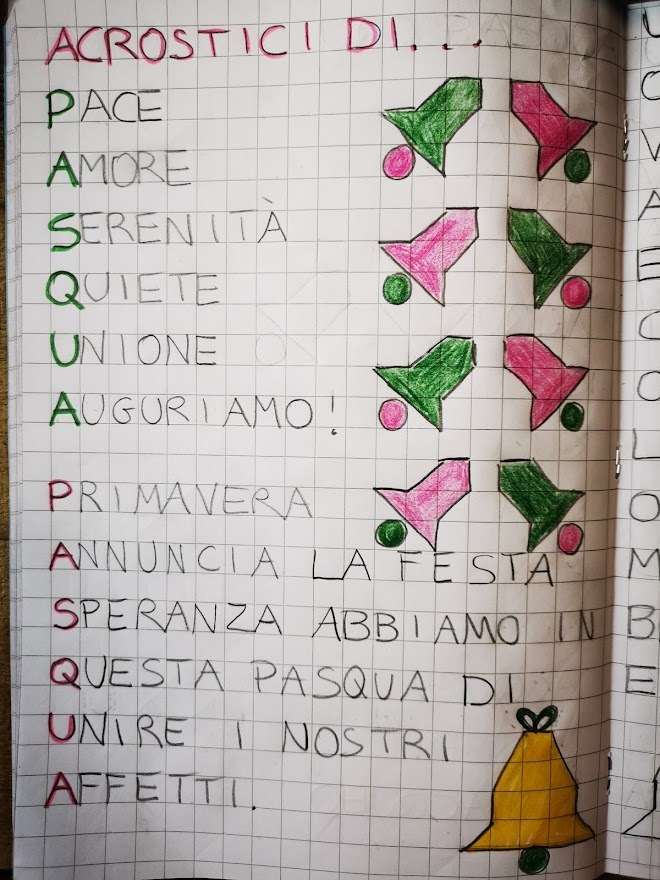 ACROSTICI DI...
PACE
AMORE
SERENITÀ
QUIETE
UNIONE
AUGURIAMO!
PRIMAVERA
ANNUNCIA LA FESTA
SPERANZA ABBIAMO IN
QUESTA PASQUA DI
UNIRE I NOSTRI
AFFETTI.
U
O
V
A
E
C
O
L
O
M
B
E